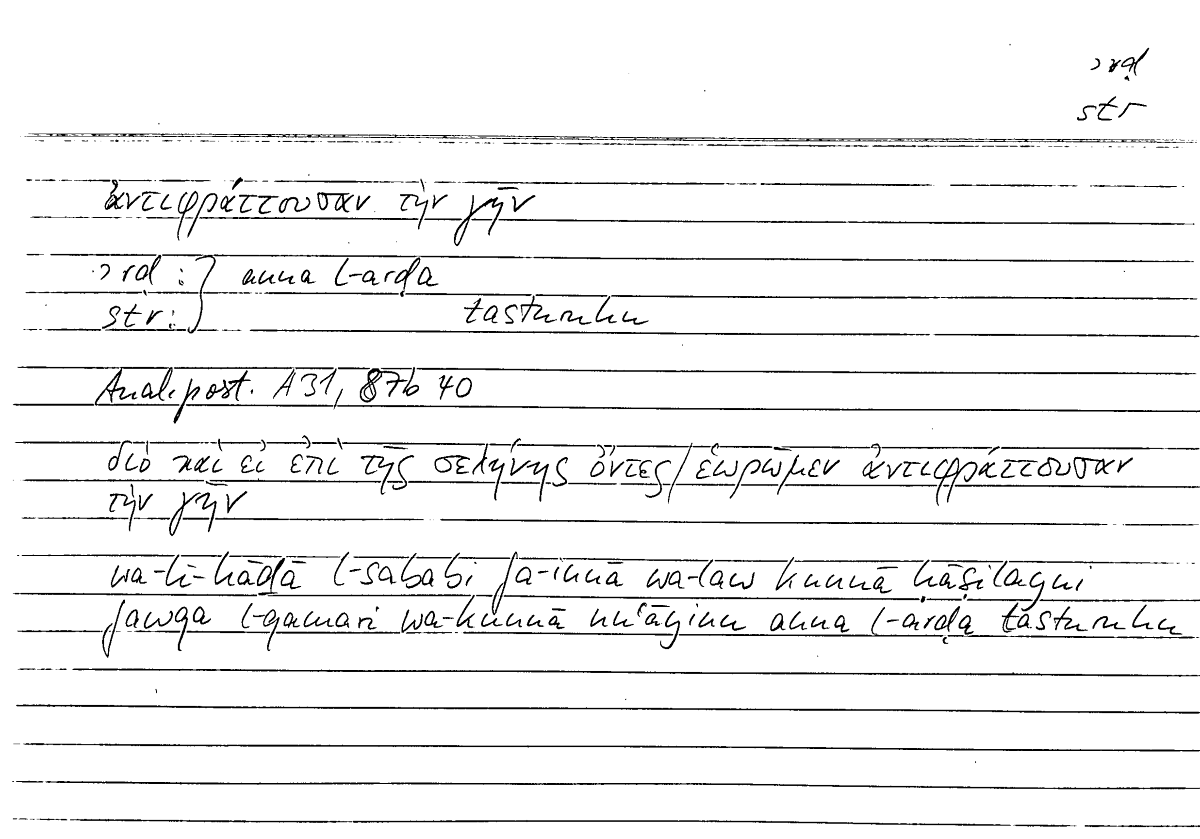 ʾrḍ
str
ἀντιφράττουσαν τὴν γῆν
ʾrḍ : } anna l-arḍa
str : } tasturuhu
Anal. post. A 31, 87b 40
διὸ καὶ εἰ ἐπὶ τῆς σελήνης ὄντες/ἑωρῶμεν ἀντιφράττουσαν
τὴν γῆν
wa-li-hāḏā l-sababi fa-innā wa-law kunnā ḥāṣilayni
fawqa l-qamari wa-kunnā nuʿāyinu anna l-arḍa tasturuhu